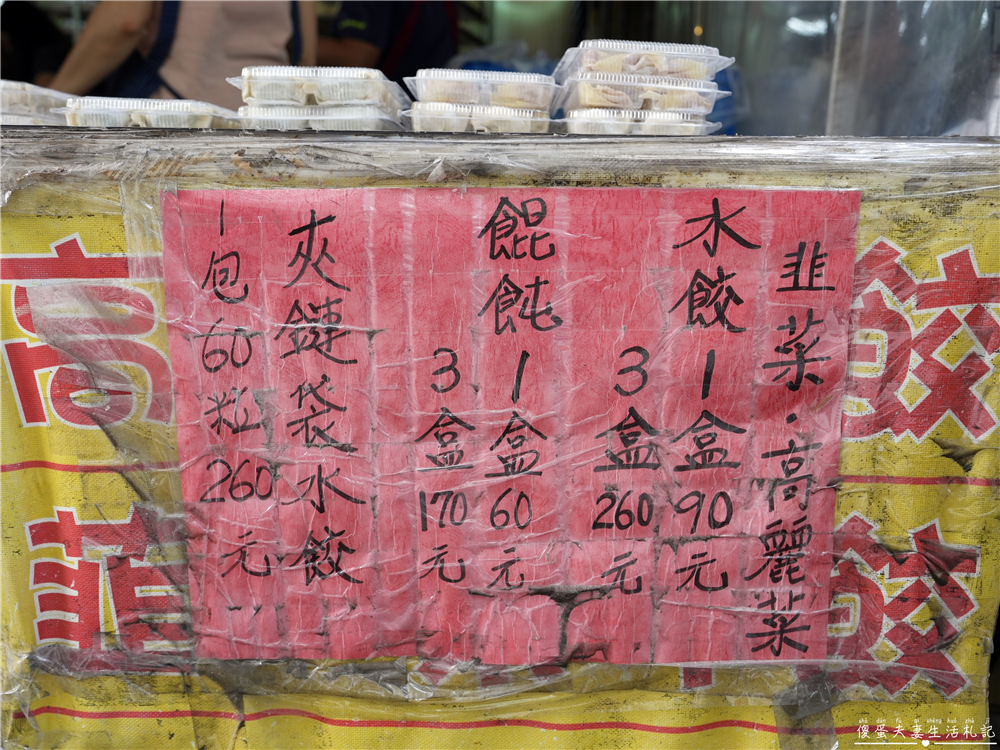 韭菜·高麗菜
水餃 1盒 90元
3盒 260元
餛飩 1盒 60元
3盒 170元
夾鏈袋水餃
1包60粒 260元
高
韭
餃
餃
shǎ dàn fū qī shēng huó zhá jì
傻蛋夫妻生活札記